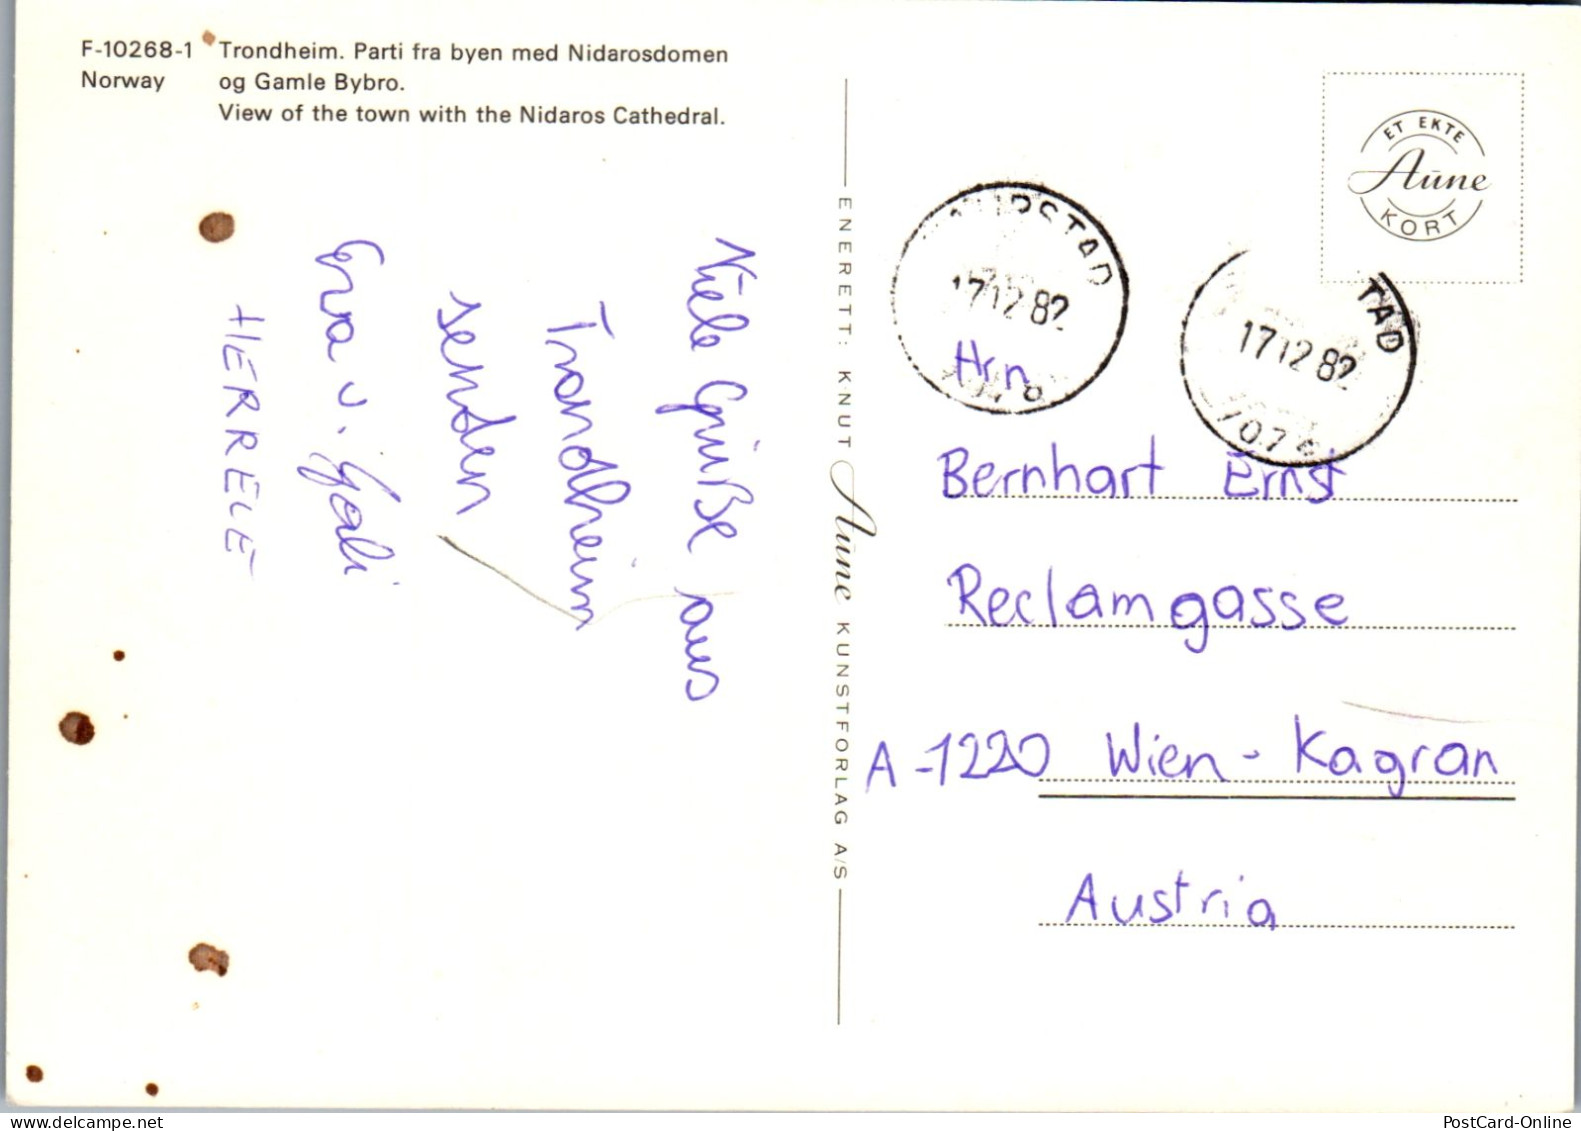 F-10268-1 Trondheim. Parti fra byen med Nidarosdomen
Norway og Gamle Bybro.
View of the town with the Nidaros Cathedral.
Viele Grüße aus
Trondheim
senden
Eva u. Gabi
HERRELE
ENERETT: KNUT Aune KUNSTFORLAG A/S
ET EKTE
Aune
KORT
17 12 82
TAD
17 12 82
707
Hrn
Bernhart Ernst
Reclamgasse
A-1220 Wien-Kagran
Austria
PostCard-Online
www.delcampe.net